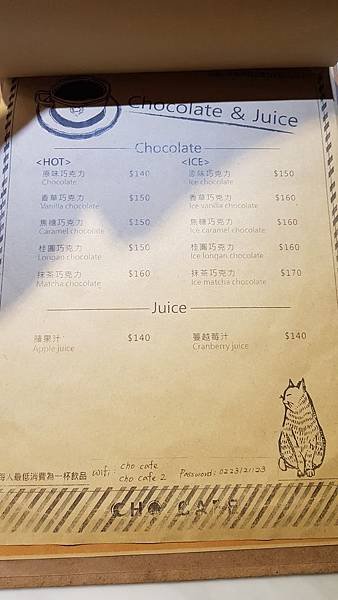 Chocolate & Juice
Chocolate
<HOT> <ICE>
原味巧克力 $140 原味巧克力 $150
Chocolate Ice chocolate
香草巧克力 $150 香草巧克力 $160
Vanilla chocolate Ice vanilla chocolate
焦糖巧克力 $150 焦糖巧克力 $160
Caramel chocolate Ice caramel chocolate
桂圓巧克力 $150 桂圓巧克力 $160
Longan chocolate Ice longan chocolate
抹茶巧克力 $160 抹茶巧克力 $170
Matcha chocolate Ice matcha chocolate
Juice
蘋果汁 $140 蔓越莓汁 $140
Apple juice Cranberry juice
每人最低消費為一杯飲品 wifi: cho cafe Password: 0223121123
cho cafe 2
CHO CAFE